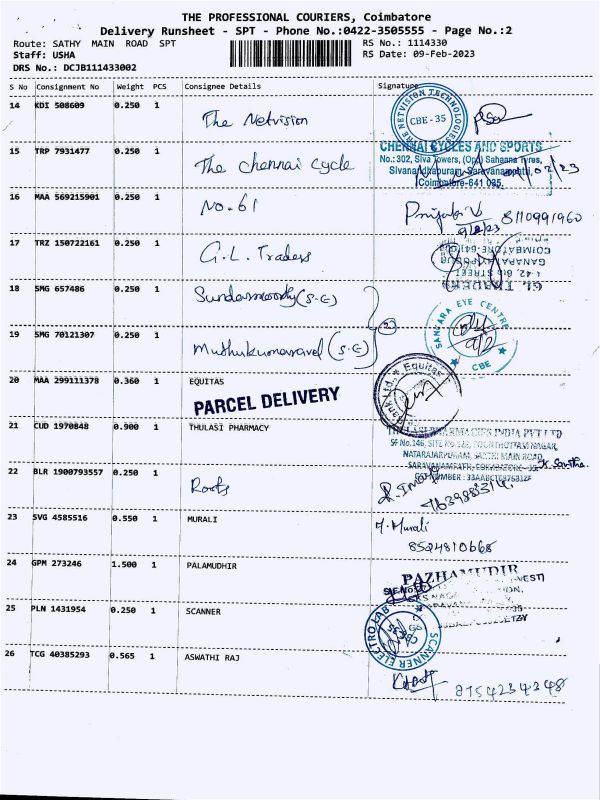 THE PROFESSIONAL COURIERS, Coimbatore
Delivery Runsheet - SPT - Phone No.:0422-3505555 - Page No.:2
Route: SATHY MAIN ROAD SPT
RS No.: 1114330
Staff: USHA
RS Date: 09-Feb-2023
DRS No.: DCJB111433002
S No Consignment No Weight PCS Consignee Details Signature
14 KDI 508609 0.250 1 The Netvision
NETVISION TECHNOLOGIES
CBE-35
15 TRP 7931477 0.250 1 The chennai cycle
CHENNAI CYCLES AND SPORTS
No.:302, Siva Towers, (Opp) Sahaana Tyres,
Sivanandhapuram, Saravanampatti,
Coimbatore-641 035.
16 MAA 569215901 0.250 1 No. 61
8110991960
9/2/23
17 TRZ 150722161 0.250 1 G.L. Traders
GANAPATHYPUR
COIMBATORE-641
GL TRADERS
18 SMG 657486 0.250 1 Sundarmoorthy (S.E)
19 SMG 70121307 0.250 1 Muthukumaravel (S.E)
2
SANKARA EYE CENTRE
CBE
20 MAA 299111378 0.360 1 EQUITAS
PARCEL DELIVERY
Equitas
Bank Ltd.,
21 CUD 1970848 0.900 1 THULASI PHARMACY
THULASI PHARMACIES INDIA PVT LTD
NATARAJAPURAM, SATHI MAIN ROAD,
SARAVANAMPATTI, COIMBATORE-35
22 BLR 1900793557 0.250 1 Roots
23 SVG 4585516 0.550 1 MURALI
M. Murali
8524810668
24 GPM 273246 1.500 1 PALAMUDHIR
PAZHAMUDIR
25 PLN 1431954 0.250 1 SCANNER
SCANNER ELECTRO LAB
26 TCG 40385293 0.565 1 ASWATHI RAJ
8754234248